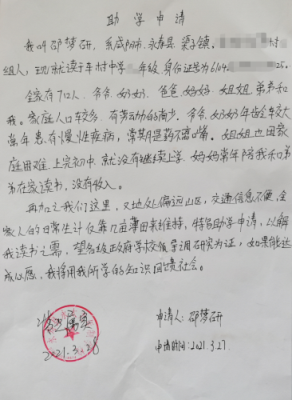 助学申请
我叫邵梦研，系咸阳市永寿县渠子镇
组人，现就读于车村中学 年级，身份证号为6104
全家有7口人，爷爷、奶奶、爸爸、妈妈、姐姐、弟弟和
我。家庭人口较多，有劳动的减少，爷爷、奶奶年龄较大
常年患有慢性疾病，常期医药不离嘴。姐姐也因家
庭困难上完初中就没有继续上学，妈妈常年陪我和弟
弟在家读书，没有收入。
再加之我们这里，又地处偏远山区，交通信息不便，全
家人的日常生计仅靠几亩薄田来维持，特写助学申请，以解
我读书之需，望各级政府学校领导调研究为证，如果能达
成心愿，我将用我所学的知识回馈社会。
情况属实
2021.3.28
申请人：邵梦研
申请时间：2021.3.27.